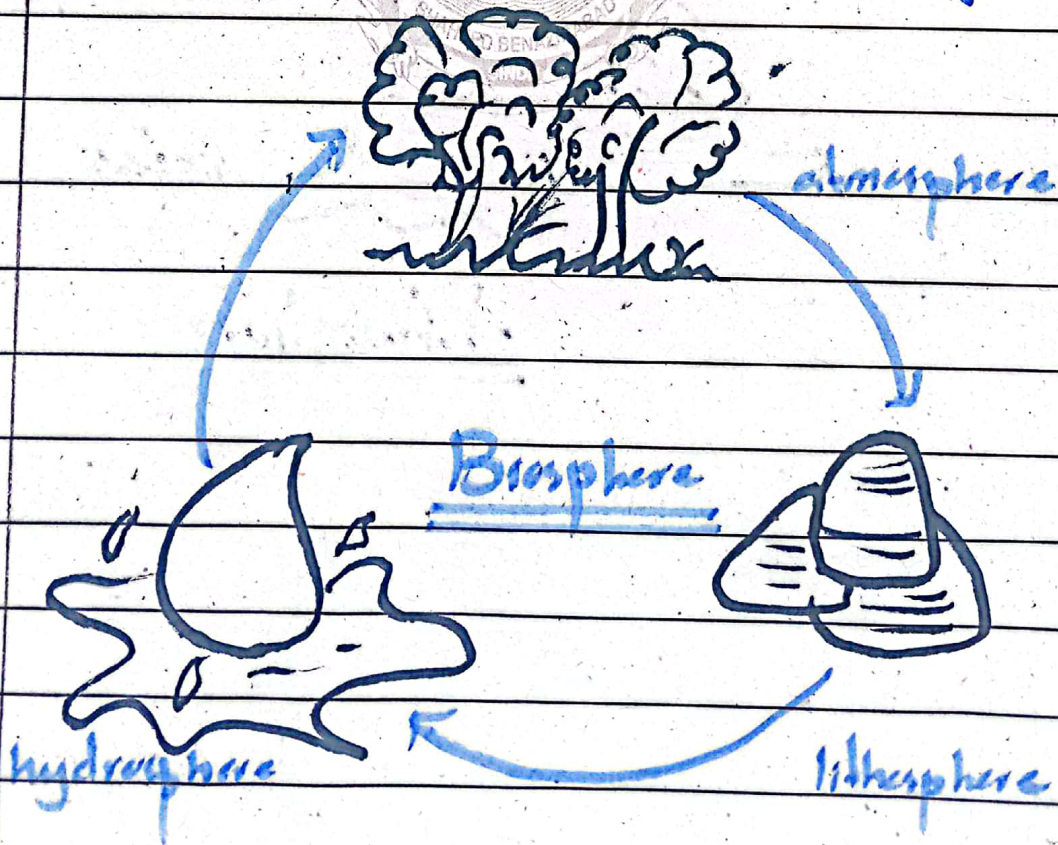 BENAZ
atmosphere
Biosphere
hydrosphere
lithosphere